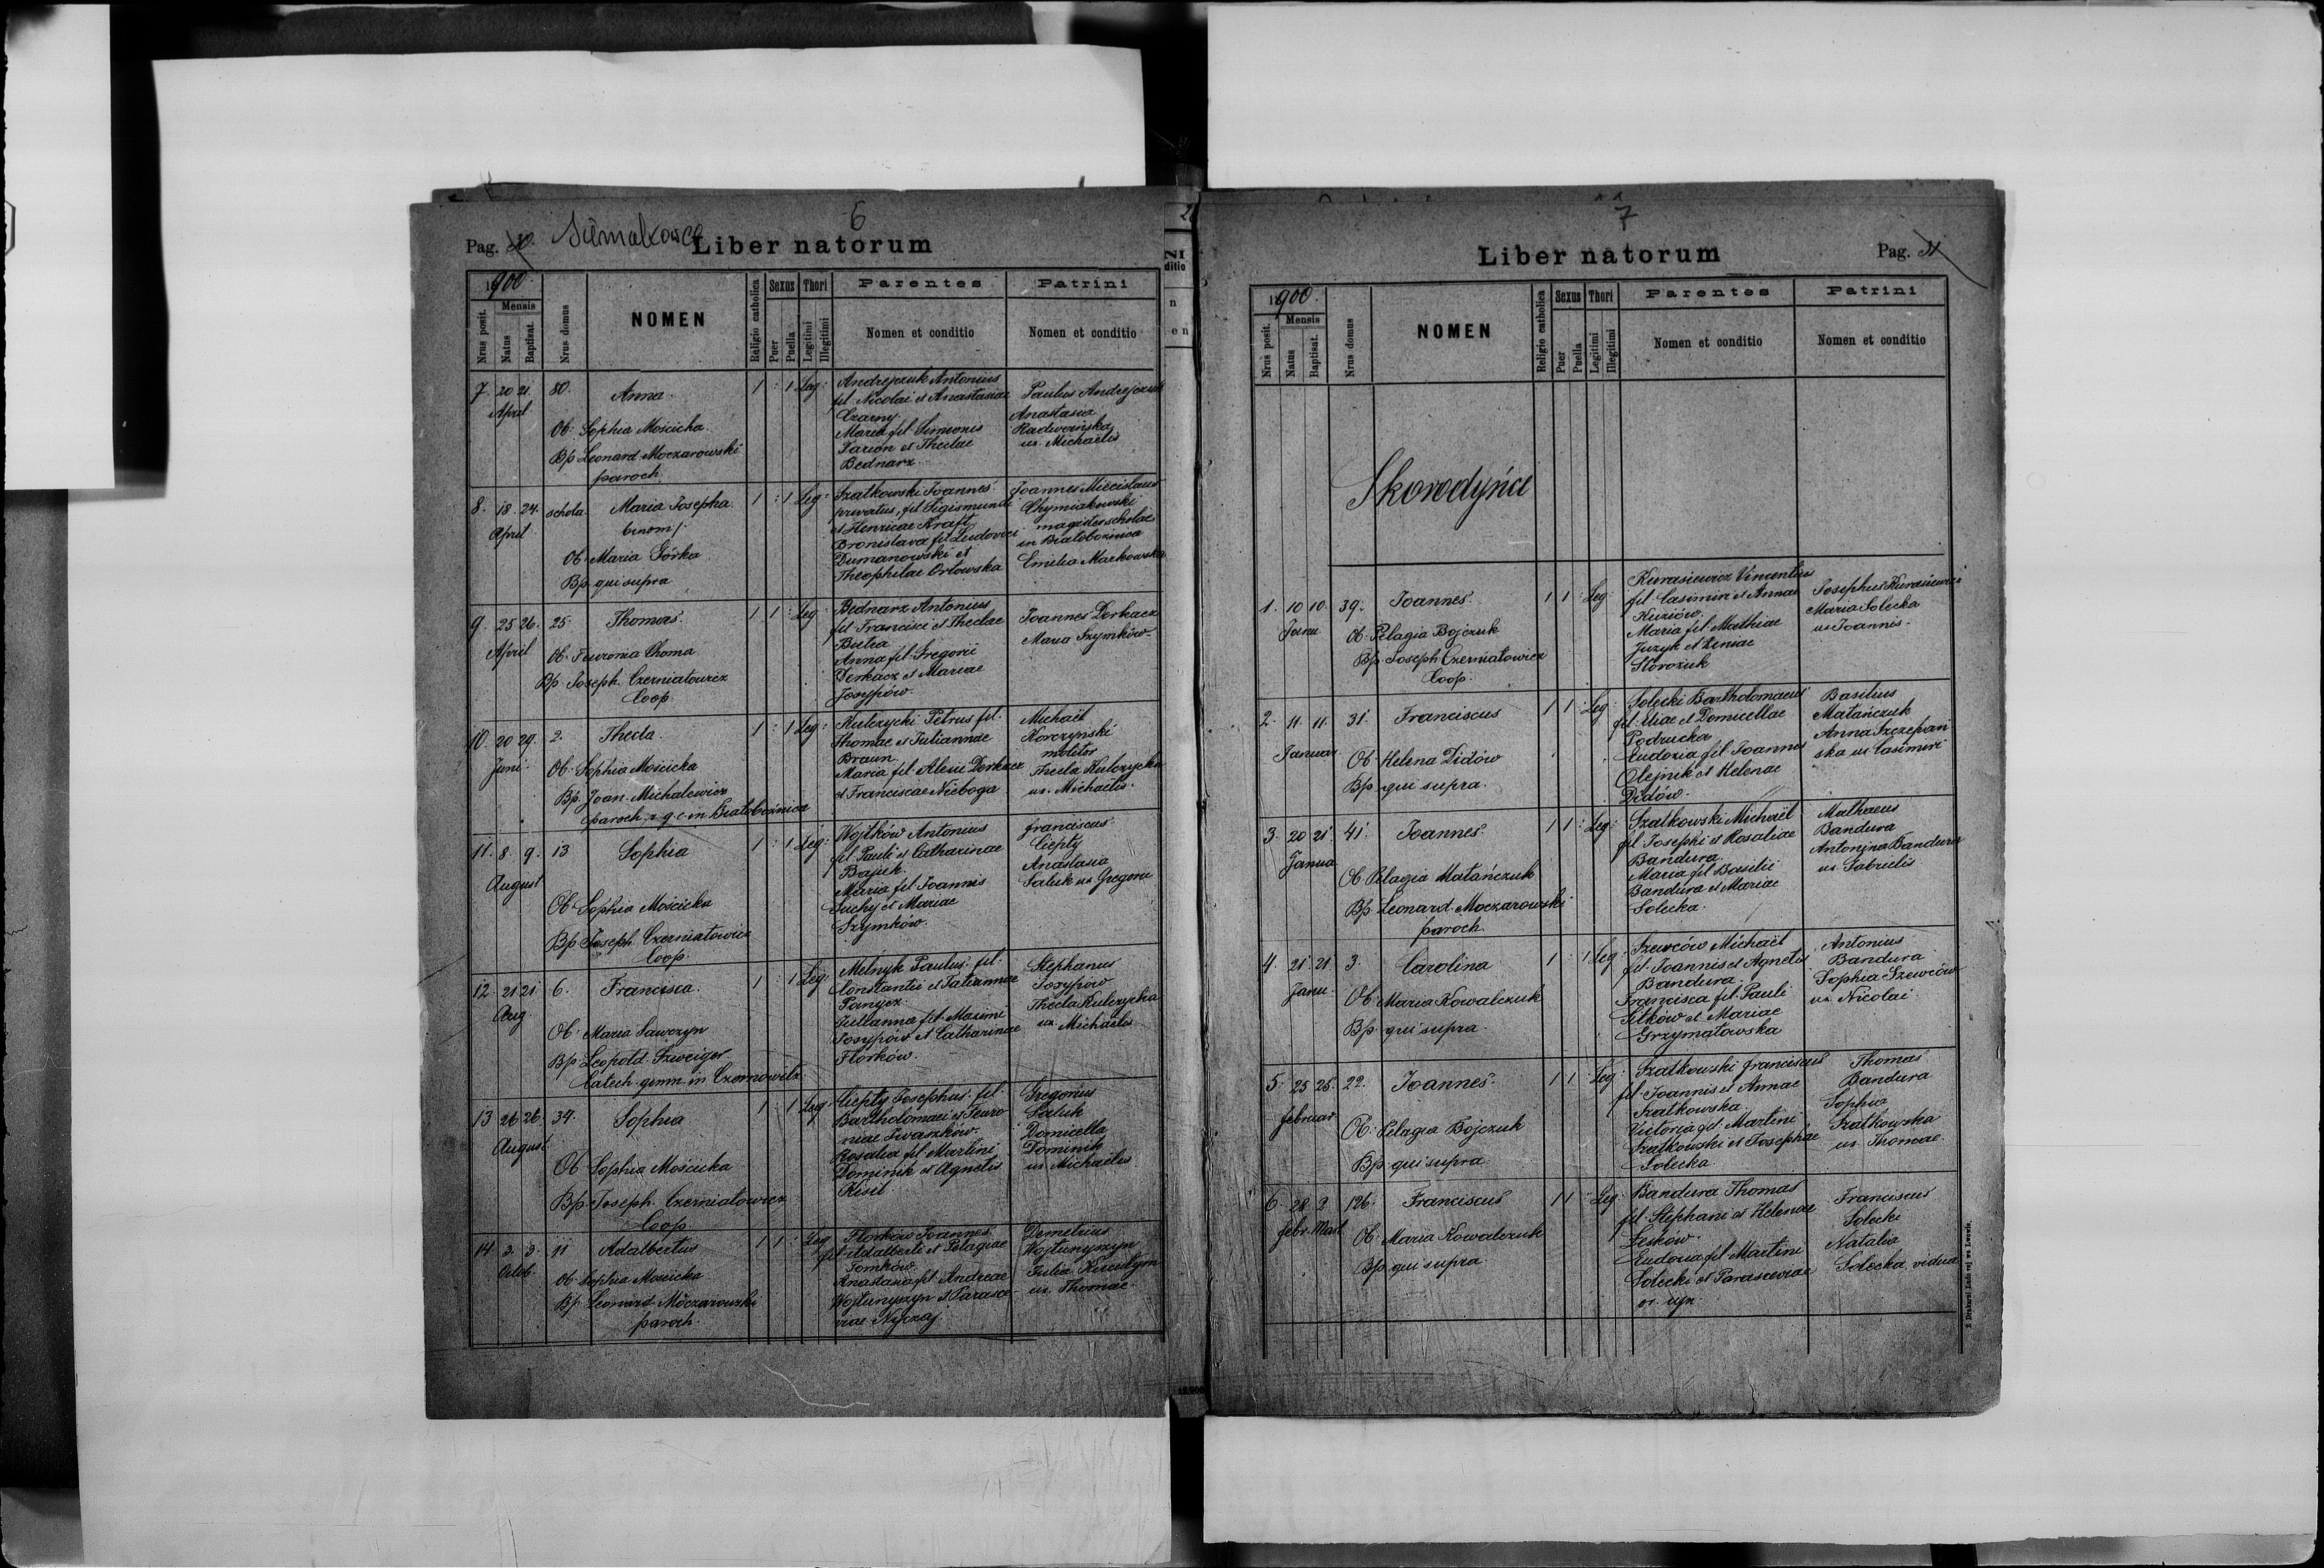 6
Pag. 30. Siemakowce
Liber natorum
1900.
Nrus posit.
Mensis
Natus
Baptisat.
Nrus domus
NOMEN
Religio catholica
Sexus
Puer
Puella
Thori
Legitimi
Illegitimi
Parentes
Nomen et conditio
Patrini
Nomen et conditio
7. 20 21. 80. Anna. 1 : 1 Leg:
April
Ob: Sophia Mościcka.
Bp. Leonard Moczarowski
paroch.
Andrejczuk Antonius
fil. Nicolai et Anastasiae
Czarny.
Maria fil. Simeonis
Tarion et Theclae
Bednarz
Paulus Andrejczuk
Anastasia
Radwańska
ux. Michaelis
8. 18. 24. schola Maria Josepha 1 : 1 Leg:
April
binom/.
Ob. Maria Górka
Bp. qui supra
Szatkowski Joannes
privatus, fil. Sigismundi
et Henricae Kraft,
Bronislava fil. Ludovici
Dumanowski et
Theophilae Orłowska
Joannes Miecislaus
Chymiakowski
magister scholae
in Białobożnica
Emilia Markowska
9. 25 26. 25. Thomas. 1 1 : Leg:
April
Ob. Fevronia Choma
Bp. Joseph Czerniatowicz
Coop.
Bednarz Antonius
fil. Francisci et Theclae
Butra
Anna fil. Gregorii
Derkacz et Mariae
Josypów.
Joannes Derkacz
Maria Szymków.
10. 20 29. 2. Thecla. 1 : 1 Leg:
Juni
Ob. Sophia Mościcka
Bp. Joan. Michalewicz
paroch. r. g. c. in Białobożnica
Kulczycki Petrus fil.
Thomae et Juliannae
Braun.
Maria fil. Alexii Derkacz
et Franciscae Nieboga
Michaël
Korczyński
molitor
Thecla Kulczycka
ux. Michaelis.
11. 8. 9. 13 Sophia 1 : 1 Leg:
August
Ob. Sophia Mościcka
Bp. Joseph Czerniatowicz
Coop.
Wojtków Antonius
fil. Pauli et Catharinae
Bajuk.
Maria fil. Joannis
Suchy et Mariae
Szymków.
Franciscus
Ciepły
Anastasia
Saluk ux. Gregorii
12. 21 21. 6. Francisca. 1 : 1 Leg:
Aug.
Ob. Maria Sawczyn
Bp. Leopold Szweiger
Catech. gymn. in Czernowitz
Melnyk Paulus fil.
Constantii et Tatiannae
Panycz.
Julianna fil. Maximi
Josypów et Catharinae
Florków.
Stephanus
Josypów
Thecla Kulczycka
ux. Michaelis
13 26 26. 34. Sophia 1 : 1 Leg:
August
Ob. Sophia Mościcka
Bp. Joseph. Czerniatowicz
Coop.
Ciepły Josephus fil.
Bartholomaei et Fevro-
niae Iwaszków.
Rosalia fil. Martini
Dominik et Agnetis
Kisil
Gregorius
Saluk
Domicella
Dominik
ux. Michaelis
14. 3. 3. 11 Adalbertus 1 1 : Leg
Octob.
Ob. Sophia Mościcka
Bp. Leonard Moczarowski
paroch.
Florków Joannes
fil. Adalberti et Pelagiae
Tomków.
Anastasia fil. Andreae
Wojtunyszyn et Parasce-
viae Nyczaj
Demetrius
Wojtunyszyn
Julia
ux. Thomae
7
Liber natorum
Pag. 31
1900.
Nrus posit.
Mensis
Natus
Baptisat.
Nrus domus
NOMEN
Religio catholica
Sexus
Puer
Puella
Thori
Legitimi
Illegitimi
Parentes
Nomen et conditio
Patrini
Nomen et conditio
Skorodyńce
1. 10 10. 39. Joannes. 1 1 : Leg:
Janu.
Ob. Pelagia Bojczuk
Bp. Joseph Czerniatowicz
Coop.
Kurasiewicz Vincentius
fil. Casimiri et Annae
Kuziów.
Maria fil. Mathiae
Juzyk et Xeniae
Storożuk
Josephus Kurasiewicz
Maria Solecka
ux. Joannis.
2. 11. 11. 31. Franciscus 1 1 : Leg:
Januar.
Ob. Helena Didów
Bp. qui supra.
Solecki Bartholomaeus
fil. Eliae et Domicellae
Podrucka
Eudoxia fil. Joannis
Olejnik et Helenae
Didów.
Basilius
Matańczuk
Anna Szczepań
ska ux. Casimiri
3. 20 21. 41. Joannes. 1 1 : Leg:
Janua
Ob. Pelagia Matańczuk
Bp. Leonard. Moczarowski
paroch.
Szatkowski Michaël
fil. Josephi et Rosaliae
Bandura.
Maria fil. Basilii
Bandura et Mariae
Solecka.
Mathaeus
Bandura
Antonina Bandura
ux. Gabrielis
4. 21. 21. 3. Carolina 1 : 1 Leg:
Janu.
Ob. Maria Kowalczuk
Bp. qui supra.
Szewców Michaël
fil. Joannis et Agnetis
Bandura.
Francisca fil. Pauli
Sitków et Mariae
Grzymałowska
Antonius
Bandura
Sophia Szewców
ux. Nicolai.
5. 25 25. 22. Joannes. 1 1 : Leg:
Februar
Ob. Pelagia Bojczuk
Bp. qui supra.
Szatkowski Franciscus
fil. Joannis et Annae
Szatkowska.
Victoria fil. Martini
Szatkowski et Josephae
Solecka
Thomas
Bandura
Sophia
Szatkowska
ux. Thomae.
6 28 2 126. Franciscus 1 1 : Leg:
Febr. Mart
Ob. Maria Kowalczuk
Bp. qui supra.
Bandura Thomas
fil. Stephani et Helenae
Lesków.
Eudoxia fil. Martini
Solecki et Parasceviae
Franciscus
Solecki
Natalia
Solecka, vidua